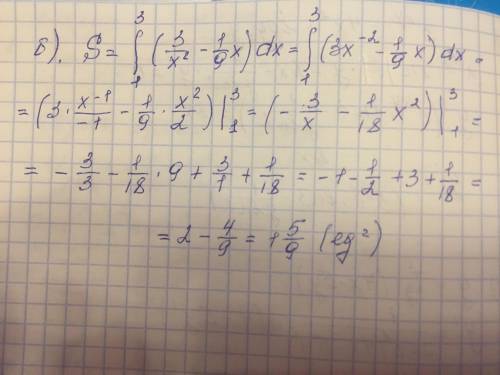 б). S = ∫₁³ (3/x² - 1/9 x) dx = ∫₁³ (3x⁻² - 1/9 x) dx =
= (3 · x⁻¹/-1 - 1/9 · x²/2) |₁³ = (- 3/x - 1/18 x²) |₁³ =
= - 3/3 - 1/18 · 9 + 3/1 + 1/18 = -1 - 1/2 + 3 + 1/18 =
= 2 - 4/9 = 1 5/9 (eg²)